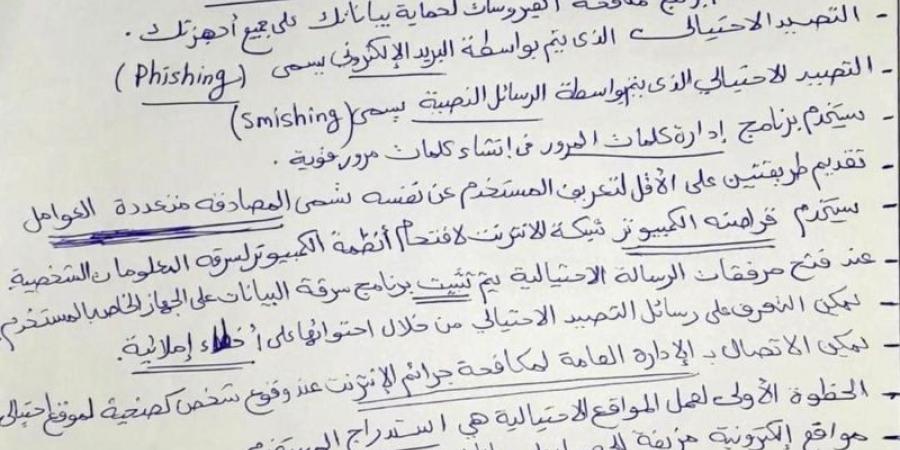 برنامج مكافحة الفيروسات لحماية بياناتك على جميع أجهزتك .
- التصيد الاحتيالي الذى يتم بواسطة البريد الإلكتروني يسمى (Phishing)
- التصييد للاحتيالي الذى يتم بواسطة الرسائل النصية يسمى (Smishing)
- سيتخدم برنامج إدارة كلمات المرور فى إنشاء كلمات مرور قوية .
- تقديم طريقتين على الأقل لتعريف المستخدم عن نفسه تسمى المصادقه متعددة العوامل
- سيتخدم قراصنه الكمبيوتر شبكة الانترنت لاقتحام أنظمة الكمبيوتر لسرقه المعلومات الشخصية
- عند فتح مرفقات الرسالة الاحتيالية يتم تثبيت برنامج سرقة البيانات على الجهاز الخاص بالمستخدم.
- يمكن التعرف على رسائل التصيد الاحتيالي من خلال احتوائها على أخطاء إملائية.
- يمكن الاتصال بـ الإدارة العامة لمكافحة جرائم الإنترنت عند وقوع شخص كضحية لموقع إحتيالى
- الخطوة الأولى لعمل المواقع الاحتيالية هي استدراج
- مواقع إلكترونية مزيفة